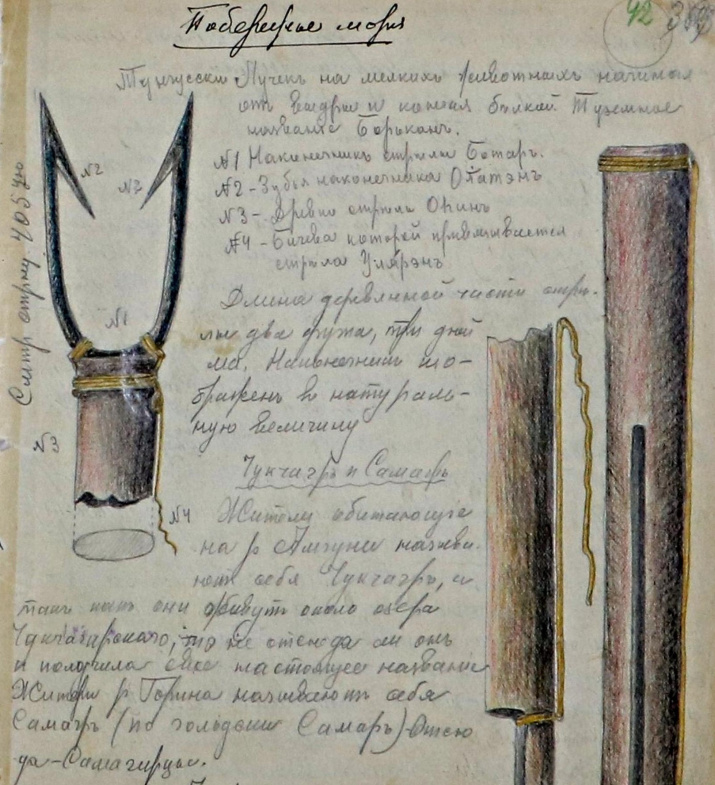 Побережье моря
42
Тунгусскій Лучекъ на мелкихъ животныхъ начиная
отъ выдры и кончая бѣлкой. Туземное
названіе Борьканъ.
№1 Наконечникъ стрѣлы Ботаръ.
№2 - Зубья наконечника
№3 - Древко стрѣлы
№4 - Бичева которой привязывается
стрѣла
Длина деревянной части стрѣ-
лы два фута, три дюй
ма. Наконечникъ изо-
браженъ въ натураль-
ную величину
Чукчагръ и Самагръ
Жители обитающіе
на р Амгуни называ
ютъ себя Чукчагръ, а
такъ какъ они живутъ около озера
Чукчагирскаго, то не отсюда ли онъ
и получила свое настоящее названіе
Жители р Горина называютъ себя
Самагръ (по гольдски Самаръ) - Отсю
да - Самагирцы.
Смотр стрну 405ую
№2
№2
№1
№3
№4